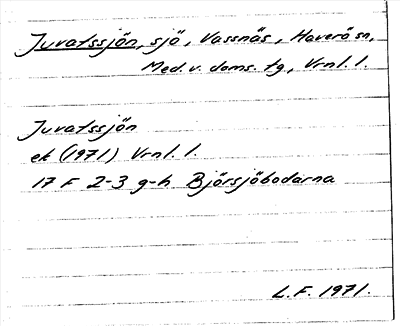 Juvatssjön, sjö, Vassnäs, Haverö sn,
Med.v. doms. tg, Vrnl. l.
Juvatssjön
ek (1971) Vrnl. l.
17 F 2-3 g-h Björsjöbodarna
L.F. 1971.